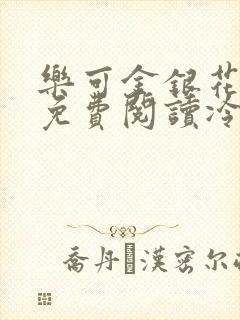 樂可金銀花
免費閱讀冷
喬丹·漢密尔